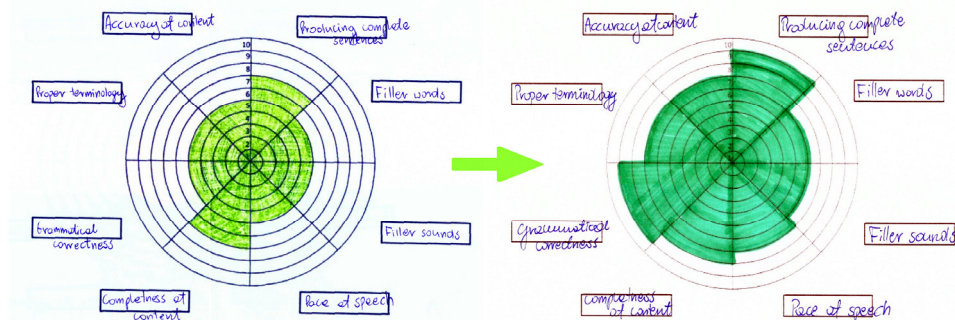 Accuracy of content
Producing complete
sentences
Proper terminology
Filler words
Grammatical
correctness
Filler sounds
Completness of
content
Pace of speech
10
9
8
7
6
5
4
3
2
Accuracy of content
Producing complete
sentences
Proper terminology
Filler words
Grammatical
correctness
Filler sounds
Completness
of content
Pace of speech
10
9
8
7
6
5
4
3
2